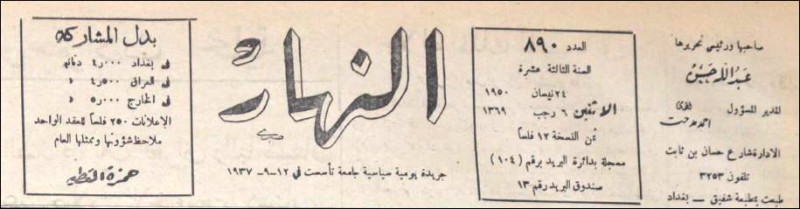 صاحبها ورئيس تحريرها
عبدالله حسن
المدير المسؤول
احمد مدحت
الادارة شارع حسان بن ثابت
تلفون ٣٢٥٣
طبعت بمطبعة شفيق – بغداد
العدد ٨٩٠
السنة الثالثة عشرة
٢٤ نيسان ١٩٥٠
الاثنين ٦ رجب ١٣٦٩
ثمن النسخة ١٢ فلساً
مسجلة بدائرة البريد برقم (١٠٤)
صندوق البريد رقم ١٣
النهار
جريدة يومية سياسية جامعة تأسست في ١٢-٩-١٩٣٧
بدل المشاركة
في بغداد ٤٫٠٠٠ دنانير
في العراق ٤٫٥٠٠ »
في الخارج ٥٫٠٠٠ »
الاعلانات ٢٥٠ فلساً للعقد الواحد
ملاحظ شؤونها وممثلها العام
حمزة